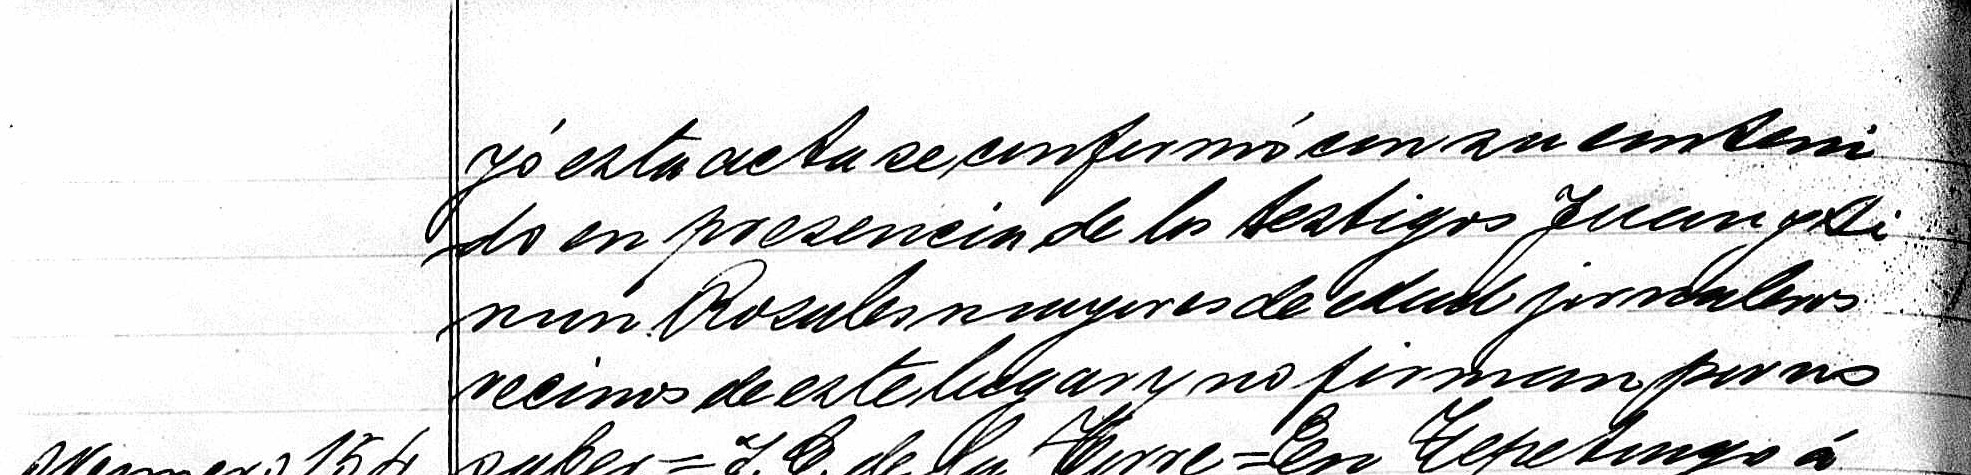 yó esta acta se confirmó con su conteni
do en presencia de los testigos Juan y
Rosales mayores de edad jornaleros
vecinos de este lugar y no firman por no
Numero 154 saber = J. C. de la Torre = En Tepetongo á